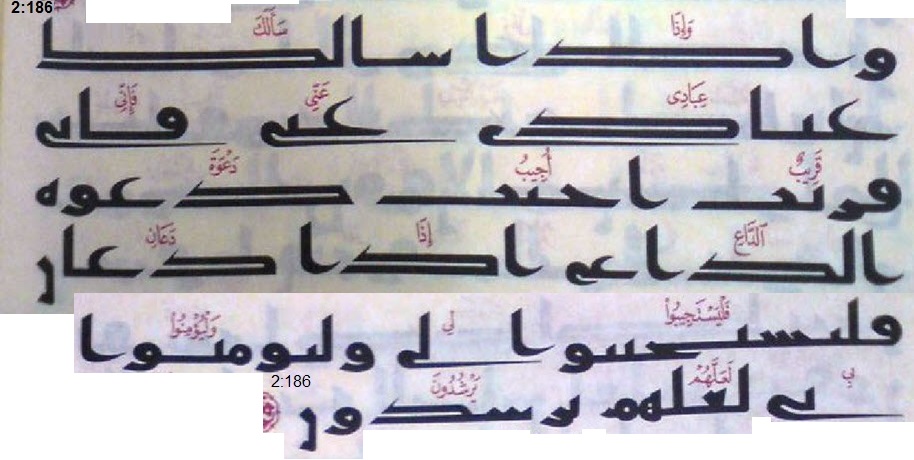 2:186
وَإِذَا سَأَلَكَ
واذا سالك
عِبَادِى عَنِّى فَإِنِّى
عبادى عنى فانى
قَرِيبٌ أُجِيبُ دَعْوَةَ
قريب اجيب دعوه
ٱلدَّاعِ إِذَا دَعَانِ
الداع اذا دعان
فَلْيَسْتَجِيبُوا۟ لِى وَلْيُؤْمِنُوا۟
فليستجيبوا لى وليومنوا
بِى لَعَلَّهُمْ يَرْشُدُونَ
بى لعلهم يرشدون
2:186